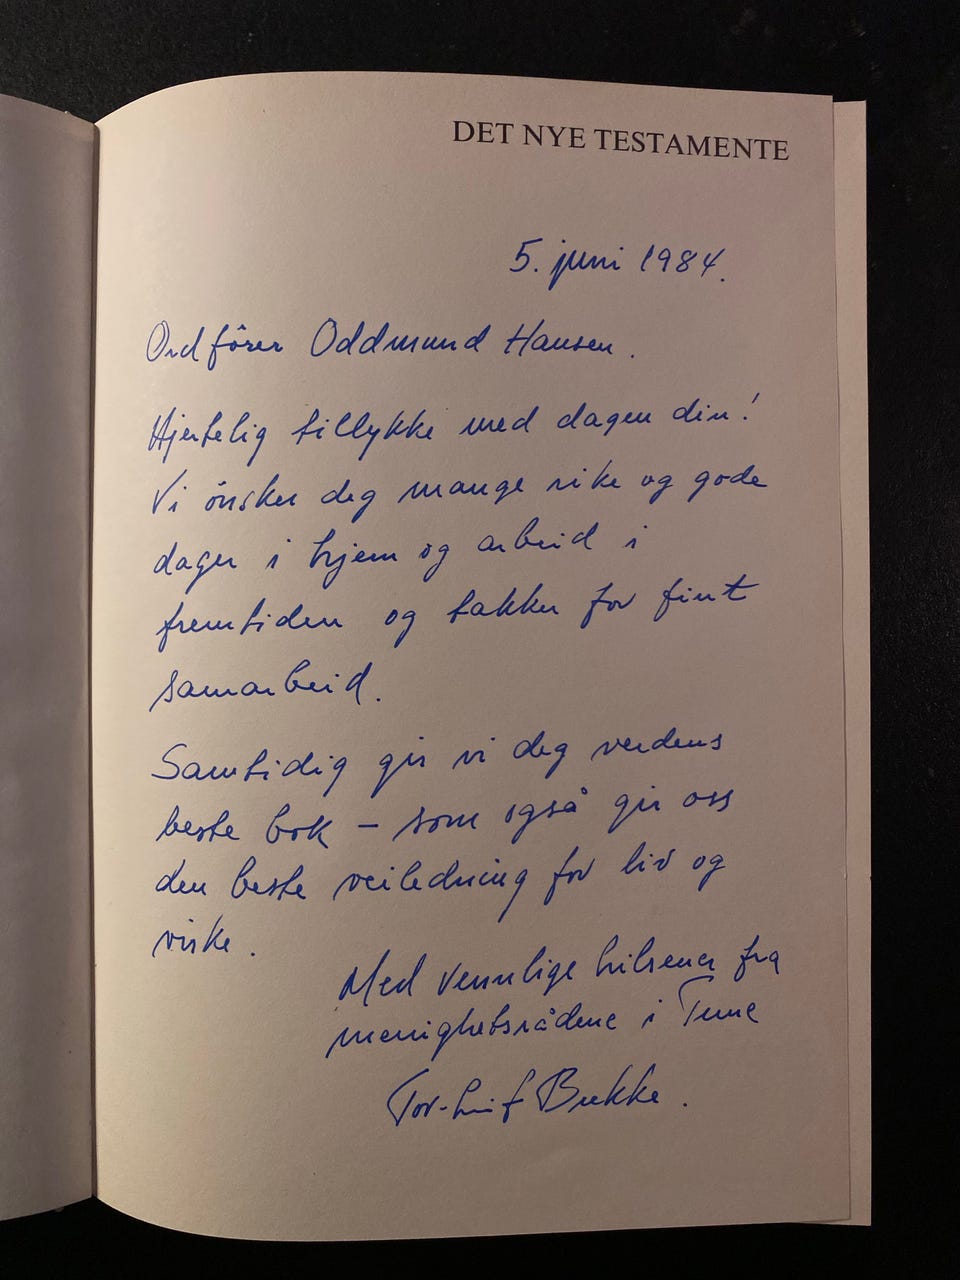 DET NYE TESTAMENTE
5. juni 1984.
Ordfører Oddmund Hansen.
Hjertelig tillykke med dagen din!
Vi ønsker deg mange rike og gode
dager i hjem og arbeid i
fremtiden og takker for fint
samarbeid.
Samtidig gir vi deg verdens
beste bok – som også gir oss
den beste veiledning for liv og
virke.
Med vennlige hilsener fra
menighetsrådene i Tune
Tor-Leif Bekke.